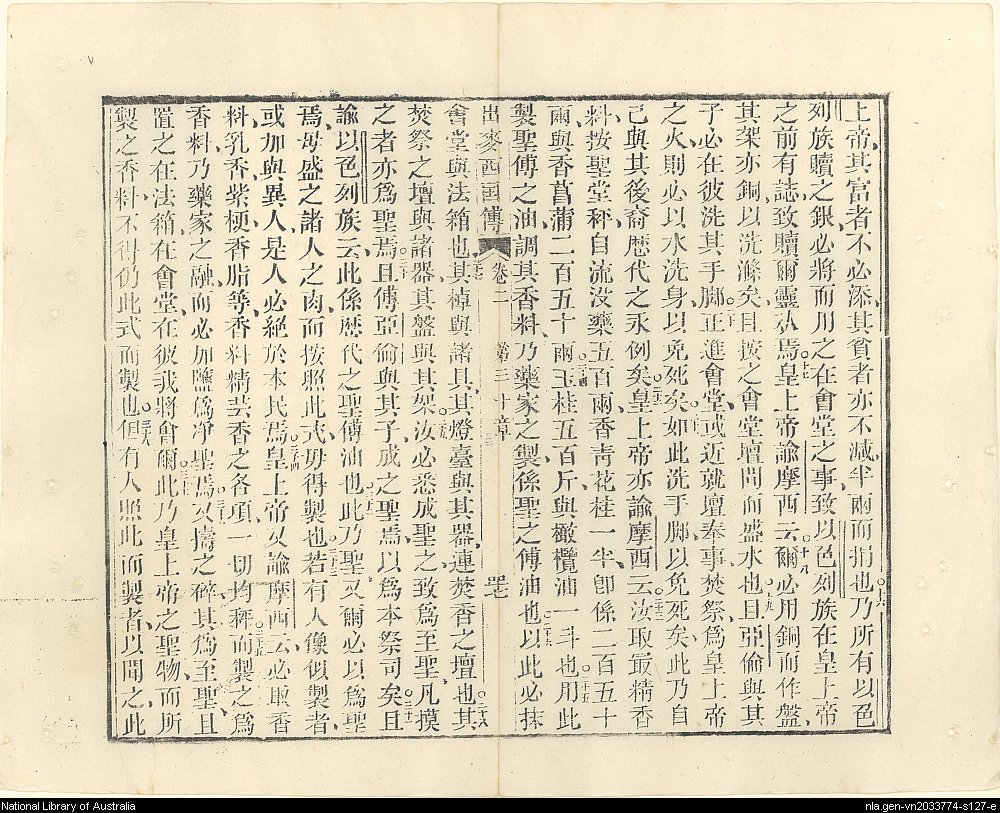 上帝、其富者不必添、其貧者亦不減半兩而捐也○十六乃所有以色
列族贖之銀必將而用之在會堂之事、致以色列族在皇上帝
之前有誌致贖爾靈䰟焉○十七皇上帝諭摩西云○十八爾必用銅而作盤
其架亦銅、以洗滌矣、且按之會堂壇間而盛水也○十九且亞倫與其
子必在彼洗其手脚○二十正進會堂、或近就壇奉事焚祭、為皇上帝
之火、則必以水洗身、以免死矣○二十一如此洗手脚、以免死矣、此乃自
己與其後裔歷代之永例矣○二十二皇上帝亦諭摩西云○二十三汝取最精香
料、按聖堂秤、自流没藥五百兩、香靑花桂一半、卽係二百五十
兩、與香菖蒲二百五十兩○二十四玉桂五百斤、與橄欖油一斗也○二十五用此
製聖傅之油、調其香料、乃藥家之製、係聖之傅油也○二十六以此必抹
出麥西國傳 卷二 第三十章
會堂與法箱也○二十七其棹與諸具、其燈臺與其器、連焚香之壇也○二十八其
焚祭之壇與諸器、其盤與其架○二十九汝必悉成聖之、致為至聖、凡摸
之者亦為聖焉○三十且傅亞倫與其子、成之聖焉、以為本祭司矣○三十一且
諭以色列族云、此係歷代之聖傅油也○三十二此乃聖、又爾必以為聖
焉、毋盛之諸人之肉、而按照此式毋得製也○三十三若有人像似製者、
或加與異人、是人必絕於本民焉○三十四皇上帝又諭摩西云、必取香
料、乳香、紫梗、香脂等、香料精芸香之各項、一切均秤○三十五而製之為
香料、乃藥家之融、而必加鹽為凈聖焉○三十六又擣之碎、其為至聖、且
置之在法箱在會堂、在彼我將會爾○三十七此乃皇上帝之聖物、而所
製之香料、不得仍此式而製也○三十八但有人照此而製者、以聞之、此
National Library of Australia
nla.gen-vn2033774-s127-e